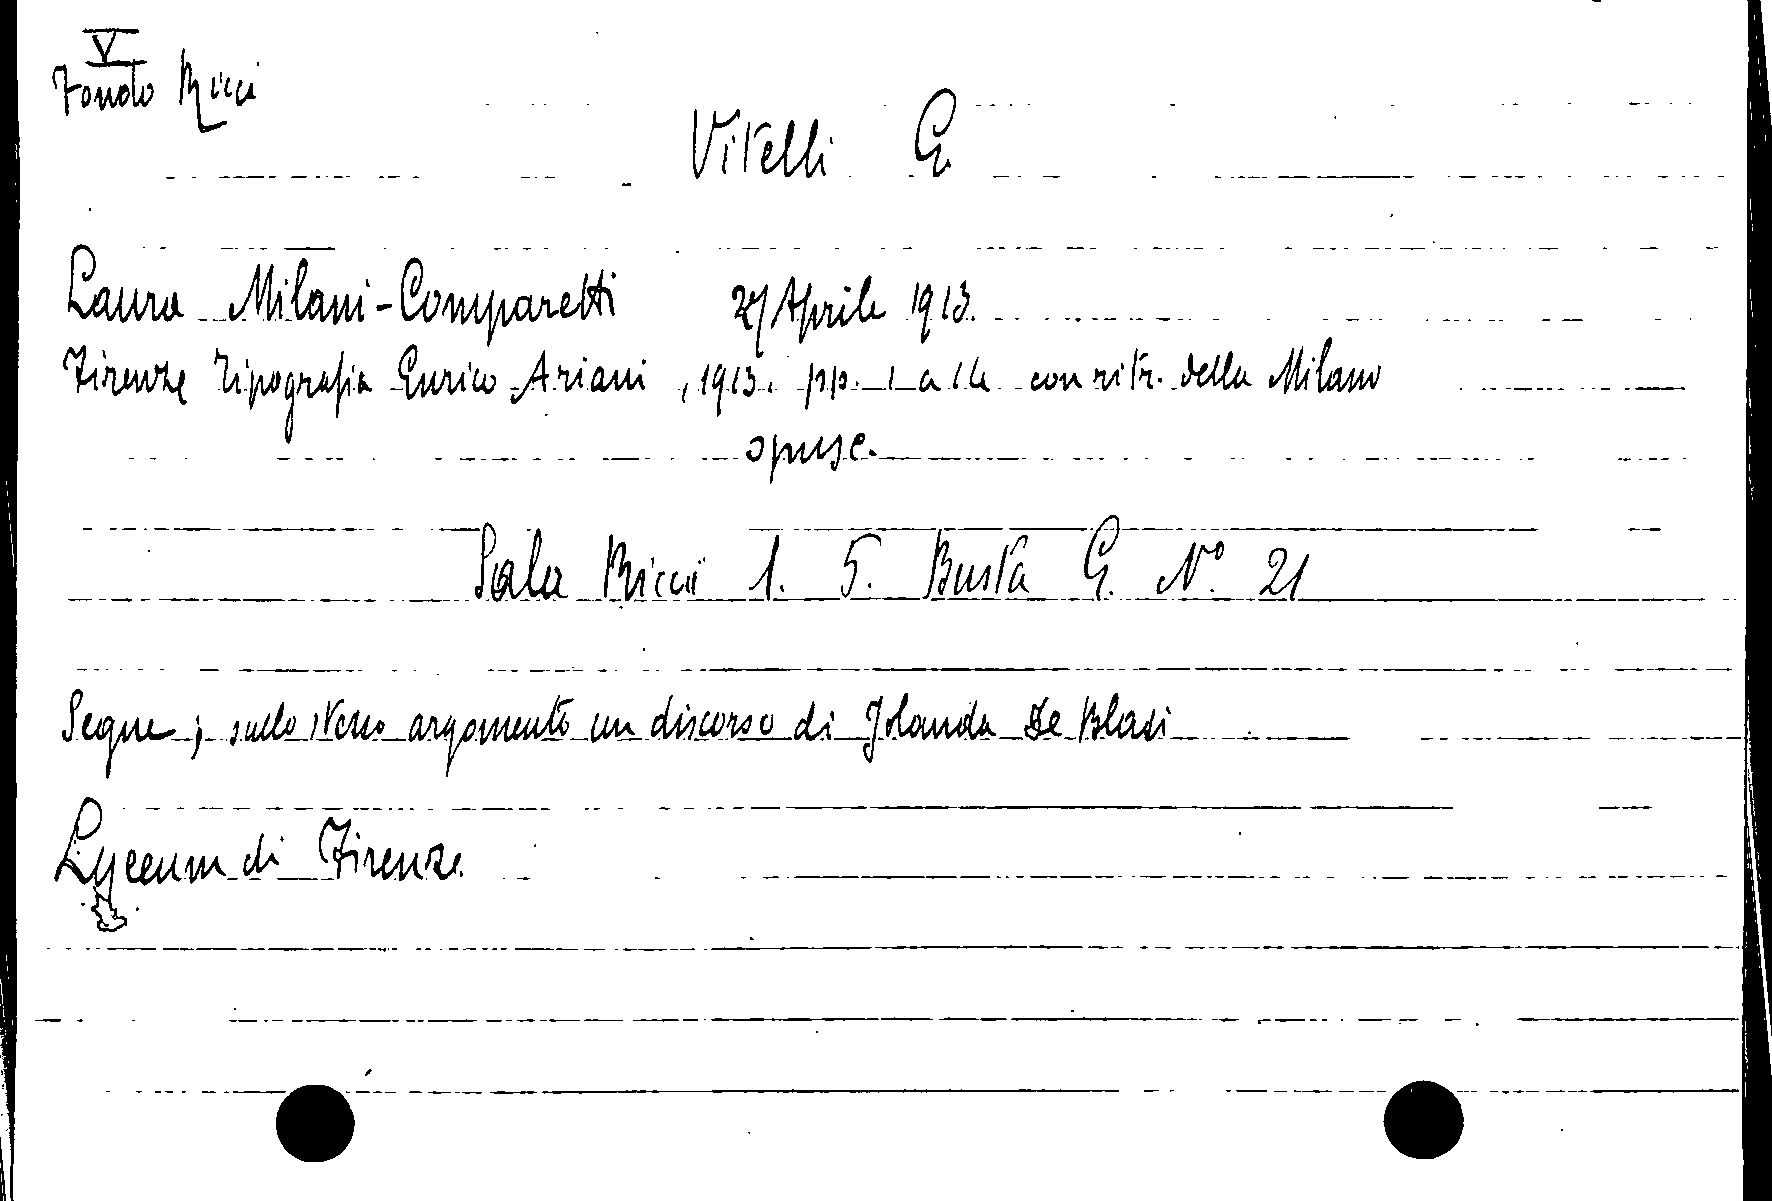 V
Fondo Ricci
Vitelli G.
Laura Milani-Comparetti 27 Aprile 1913.
Firenze Tipografia Enrico Ariani, 1913. pp. 1 a 14 con ritr. della Milano
opusc.
Sala Ricci 1. 5. Busta G. N° 21
Segue; sullo stesso argomento un discorso di Jolanda De Blasi
Lyceum di Firenze